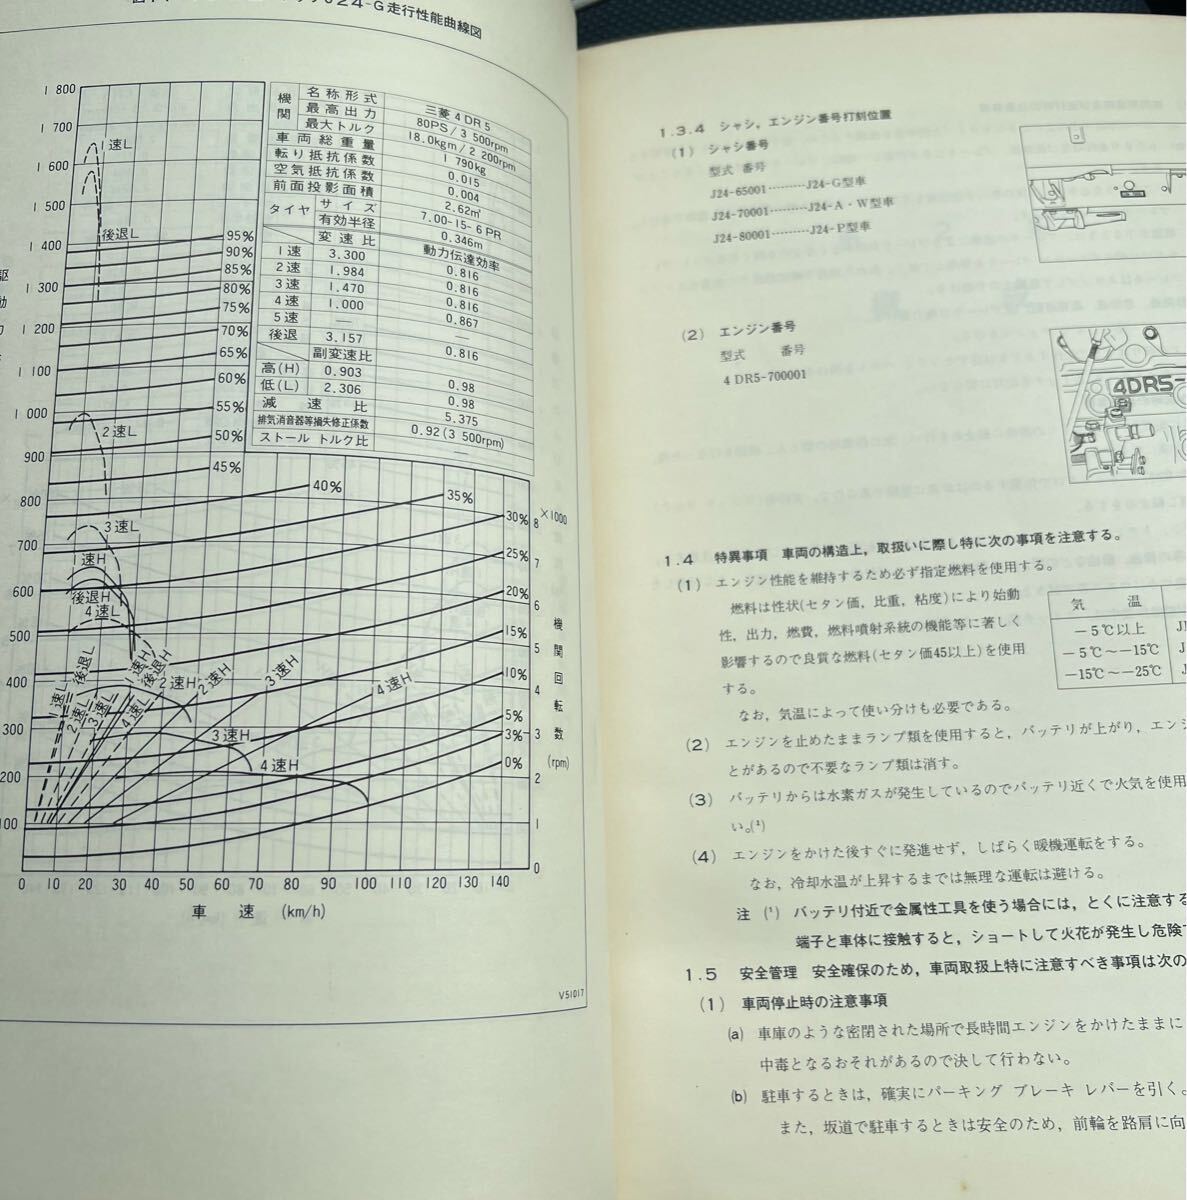 J24-G走行性能曲線図
1 800
1 700
1 600
1 500
1 400
1 300
1 200
1 100
1 000
900
800
700
600
500
400
300
200
100
機関 名称形式 三菱4DR5
最高出力 80PS/3 500rpm
最大トルク 18.0kgm/2 200rpm
車両総重量 1 790kg
転り抵抗係数 0.015
空気抵抗係数 0.004
前面投影面積 2.62㎡
タイヤ サイズ 7.00-15-6PR
有効半径 0.346m
変速比 動力伝達効率
1速 3.300 0.816
2速 1.984 0.816
3速 1.470 0.816
4速 1.000 0.867
5速 — —
後退 3.157 0.816
副変速比
高(H) 0.903 0.98
低(L) 2.306 0.98
減速比 5.375
排気消音器等損失修正係数 0.92(3 500rpm)
ストールトルク比 —
1速L
後退L
95%
90%
85%
80%
75%
70%
65%
60%
55%
50%
45%
40%
35%
30%
25%
20%
15%
10%
5%
3%
0%
2速L
3速L
速H
後退H
4速L
1速L
2速L
後退L
3速L
4速L
1速H
後退H
2速H
2速H
3速H
4速H
3速H
4速H
×1000
8
7
6
5
4
3
2
1
0
機関回転数
(rpm)
0 10 20 30 40 50 60 70 80 90 100 110 120 130 140
車速 (km/h)
V51017
1.3.4 シャシ，エンジン番号打刻位置
(1) シャシ番号
型式 番号
J24-65001………J24-G型車
J24-70001………J24-A・W型車
J24-80001………J24-P型車
(2) エンジン番号
型式 番号
4 DR5-700001
4DR5-
1.4 特異事項 車両の構造上，取扱いに際し特に次の事項を注意する。
(1) エンジン性能を維持するため必ず指定燃料を使用する。
燃料は性状(セタン価，比重，粘度)により始動
性，出力，燃費，燃料噴射系統の機能等に著しく
影響するので良質な燃料(セタン価45以上)を使用
する。
なお，気温によって使い分けも必要である。
気温
－5℃以上
－5℃～－15℃
－15℃～－25℃
(2) エンジンを止めたままランプ類を使用すると，バッテリが上がり，エンジ
とがあるので不要なランプ類は消す。
(3) バッテリからは水素ガスが発生しているのでバッテリ近くで火気を使用
い。(¹)
(4) エンジンをかけた後すぐに発進せず，しばらく暖機運転をする。
なお，冷却水温が上昇するまでは無理な運転は避ける。
注 (¹) バッテリ付近で金属性工具を使う場合には，とくに注意する
端子と車体に接触すると，ショートして火花が発生し危険
1.5 安全管理 安全確保のため，車両取扱上特に注意すべき事項は次の
(1) 車両停止時の注意事項
(a) 車庫のような密閉された場所で長時間エンジンをかけたままに
中毒となるおそれがあるので決して行わない。
(b) 駐車するときは，確実にパーキング ブレーキ レバーを引く。
また，坂道で駐車するときは安全のため，前輪を路肩に向